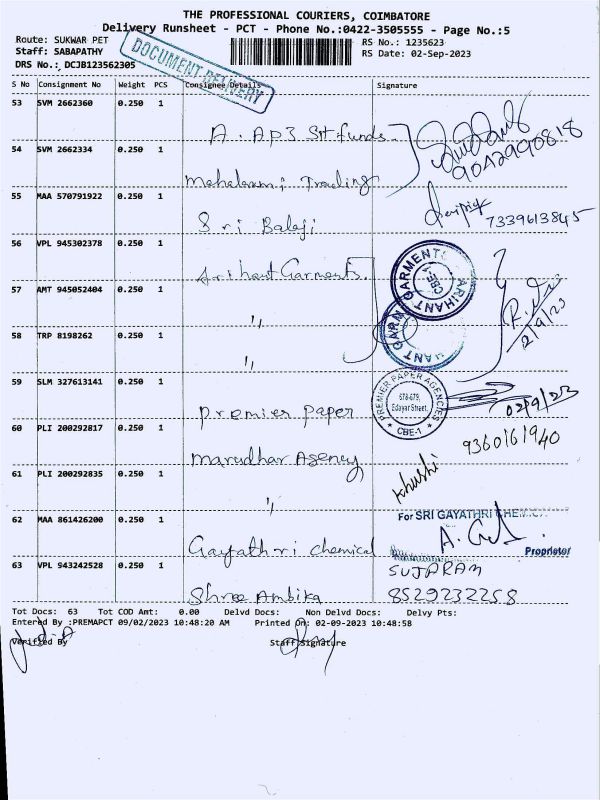 THE PROFESSIONAL COURIERS, COIMBATORE
Delivery Runsheet - PCT - Phone No.:0422-3505555 - Page No.:5
Route: SUKWAR PET
RS No.: 1235623
Staff: SABAPATHY
RS Date: 02-Sep-2023
DRS No.: DCJB123562305
DOCUMENT DELIVERY
S No Consignment No Weight PCS Consignee Details Signature
53 SVM 2662360 0.250 1
A. AP3 Sit funds
9042990818
54 SVM 2662334 0.250 1
Mahalaxmi Trading
55 MAA 570791922 0.250 1
Sri Balaji
7339613845
56 VPL 945302378 0.250 1
Arihant Garments
ARIHANT GARMENTS
CBE-1
57 AMT 945052404 0.250 1
"
2/9/23
58 TRP 8198262 0.250 1
"
59 SLM 327613141 0.250 1
Premier Paper
PREMIER PAPER AGENCIES
678-679,
Edayar Street,
CBE-1
02/9/23
60 PLI 200292817 0.250 1
Marudhar Agency
9360161940
61 PLI 200292835 0.250 1
"
Khushi
62 MAA 861426200 0.250 1
For SRI GAYATHRI CHEMICAL
Gayathri chemical
Proprietor
63 VPL 943242528 0.250 1
Shree Ambika
SUJARAM
8529232258
Tot Docs: 63 Tot COD Amt: 0.00 Delvd Docs: Non Delvd Docs: Delvy Pts:
Entered By :PREMAPCT 09/02/2023 10:48:20 AM Printed On: 02-09-2023 10:48:58
Verified By Staff Signature